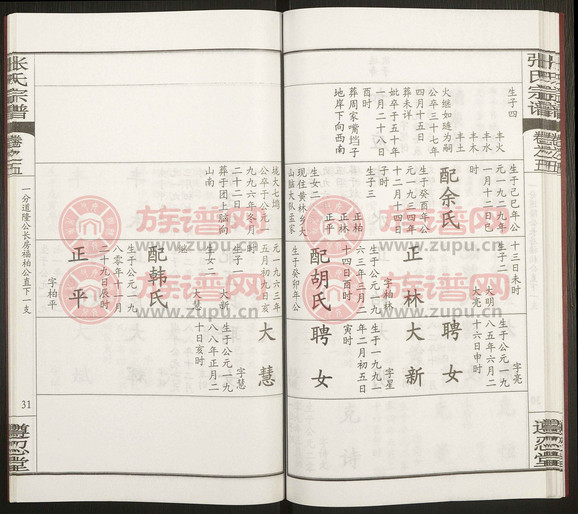 张氏宗谱
卷之五
生子四
丰火
丰水
丰木
丰土
火继如琏为嗣
公卒三十七年
四月十五日
葬未详
妣卒于五十年
一月二十八日
酉时
葬周家嘴垱子
地岸下向西南
生于己巳年公
元一九二九年
一月十二日巳
时
配余氏
生于癸酉年公
元一九三四年
十二月十四日
子时
生子三
正林
正柏
正平
生女二
现住黄林乡大
十三日未时
生子二
大明
大亮
正林
字柏林
生于公元一九
六三年三月二
十四日酉时
配胡氏
生于癸卯年公
字亮
生于公元一九
八五年六月二
十六日申时
聘女
大新
字星
生于一九九一
年二月初五日
寅时
聘女
垅大七塆
公卒于公元一
九九六年冬月
二十二日
葬于团上脑向
山南
元一九六三年
五月初九日亥
时
生子一
大慧
生女二
大亮
配韩氏
生于公元一九
八〇年十一月
二十九日辰时
正平
字柏平
大慧
字慧
生于公元一九
八八年正月二
十日亥时
张氏宗谱
卷之五
一分道隆公长房福柏公直下一支
31
遵忍堂
遵忍堂
族谱网
www.zupu.cn
族谱网
www.zupu.cn
族谱网
www.zupu.cn